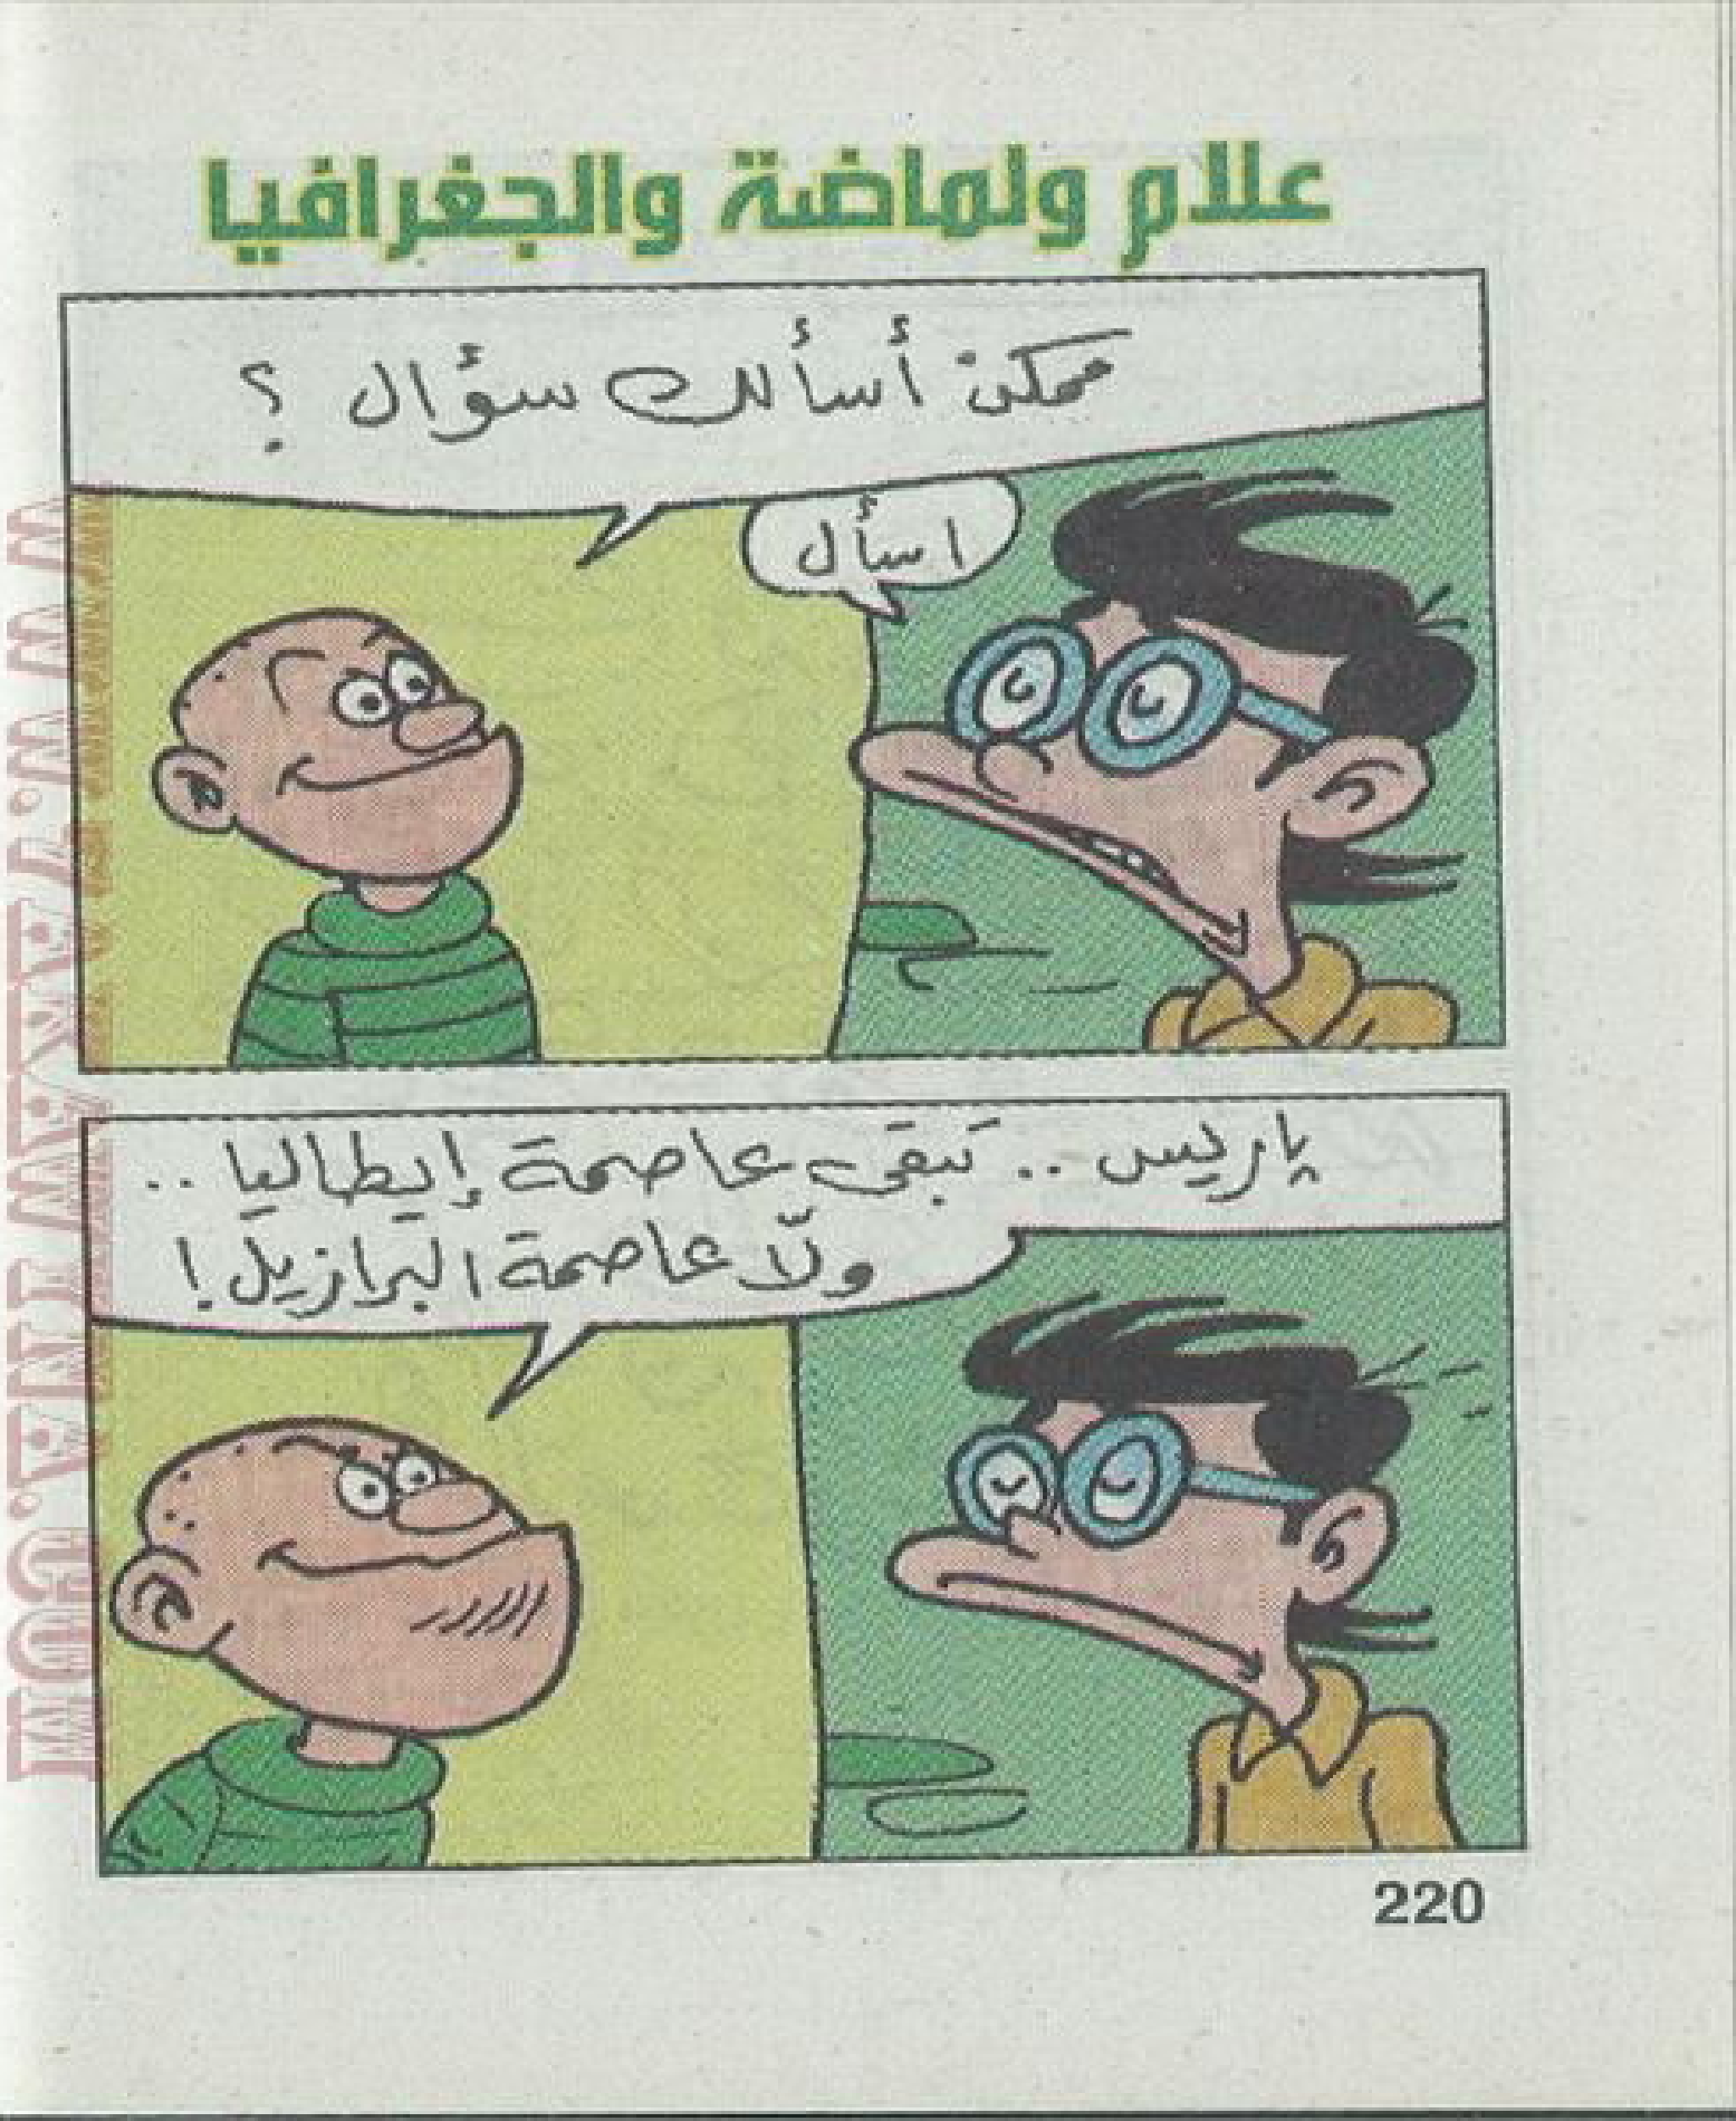 علام ولماضة والجغرافيا
ممكن أسألك سؤال ؟
اسأل
پاريس .. تبقى عاصمة إيطاليا ..
ولّا عاصمة البرازيل !
220